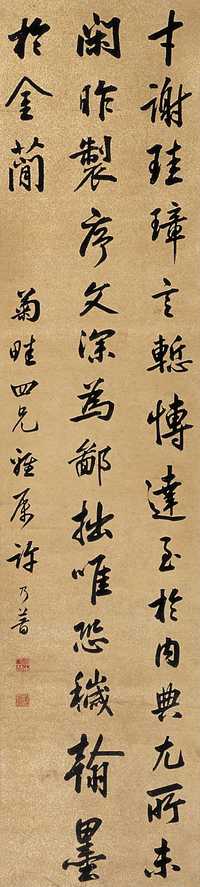 才謝珪璋言慙博達至於内典尤所未
閑昨製序文深為鄙拙唯恐穢翰墨
於金蕳
菊畦四兄雅屬許乃普